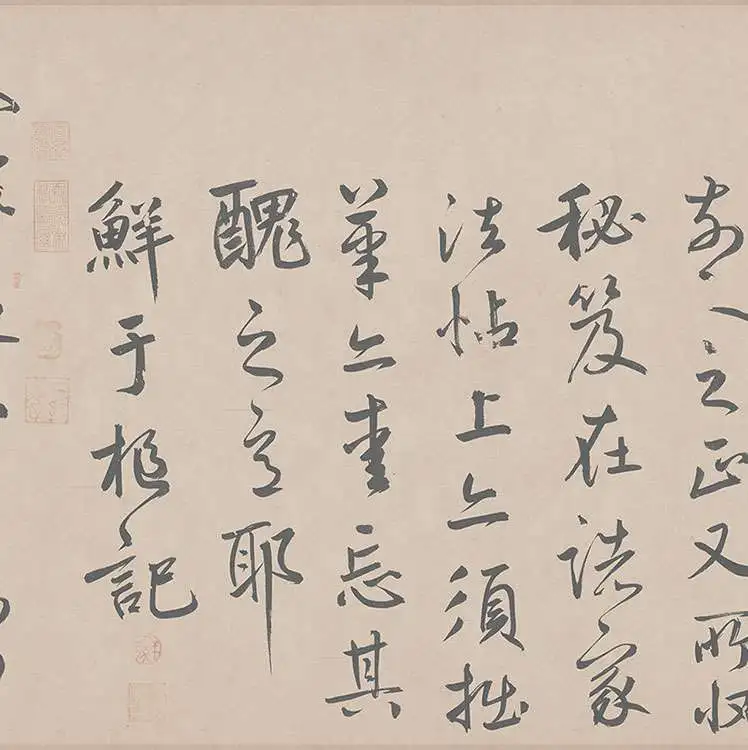 前人之正又所收
秘笈在諸家
法帖上亦須拙
筆亦愛忘其
醜之意耶
鮮于樞記